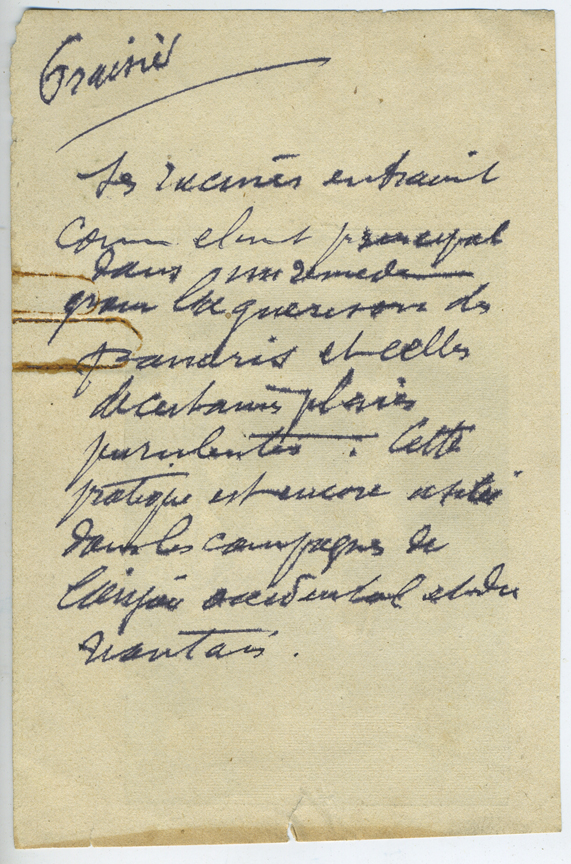 Ses racines entraient
comm elemt principal
dans un remède
pour la guerison des
panaris et celles
de certaines plaies
purulentes. Cette
pratique est encore
dans les campagnes de
l'Anjou occidental et du
nantais.